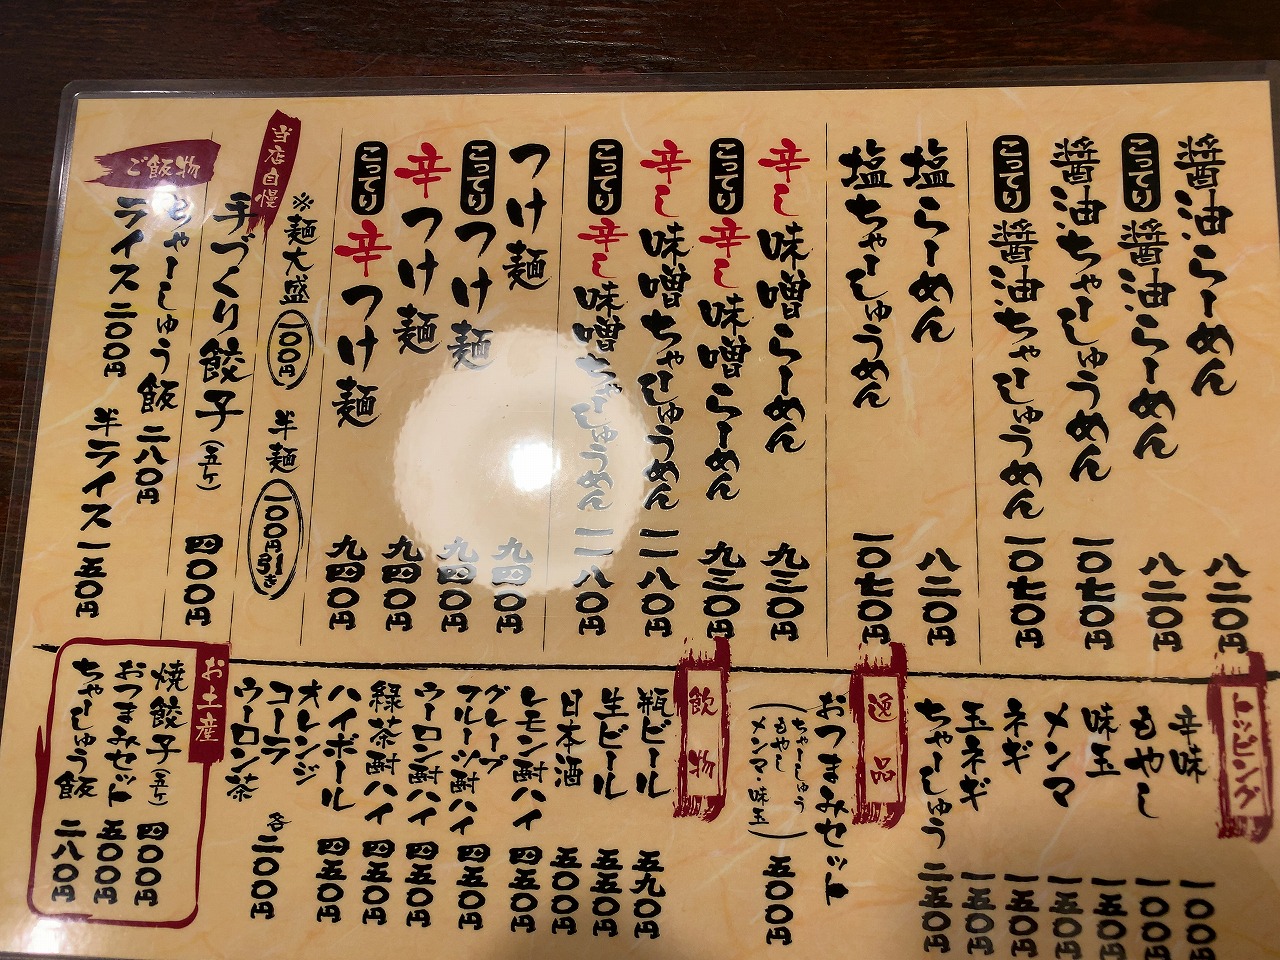 醤油らーめん 八二〇円
こってり 醤油らーめん 八二〇円
醤油ちゃーしゅうめん 一〇七〇円
こってり 醤油ちゃーしゅうめん 一〇七〇円
塩らーめん 八二〇円
塩ちゃーしゅうめん 一〇七〇円
辛し味噌らーめん 九三〇円
こってり 辛し味噌らーめん 九三〇円
辛し味噌ちゃーしゅうめん 一一八〇円
こってり 辛し味噌ちゃーしゅうめん 一一八〇円
つけ麺 九四〇円
こってり つけ麺 九四〇円
辛つけ麺 九四〇円
こってり 辛つけ麺 九四〇円
※麺大盛 一〇〇円 半麺 一〇〇円引き
当店自慢
手づくり餃子(五ケ) 四〇〇円
ご飯物
ちゃーしゅう飯 二八〇円
ライス 二〇〇円 半ライス 一五〇円
トッピング
辛味 一〇〇円
もやし 一〇〇円
味玉 一五〇円
メンマ 一五〇円
ネギ 一五〇円
玉ネギ 一五〇円
ちゃーしゅう 二五〇円
逸品
おつまみセット
(ちゃーしゅう
もやし
メンマ・味玉) 五〇〇円
飲物
瓶ビール 五九〇円
生ビール 五五〇円
日本酒 五〇〇円
レモン酎ハイ 四五〇円
グレープ
フルーツ酎ハイ 四五〇円
ウーロン酎ハイ 四五〇円
緑茶酎ハイ 四五〇円
ハイボール 四五〇円
オレンジ
コーラ
ウーロン茶 各二〇〇円
お土産
焼餃子(五ケ) 四〇〇円
おつまみセット 五〇〇円
ちゃーしゅう飯 二八〇円